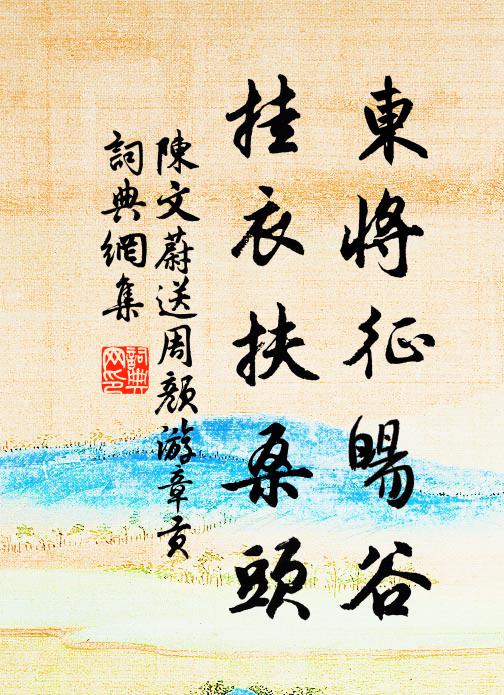 東將征暘谷
挂衣扶桑頭
陳文蔚送周顏游章貢
詞典網集
詞典網印